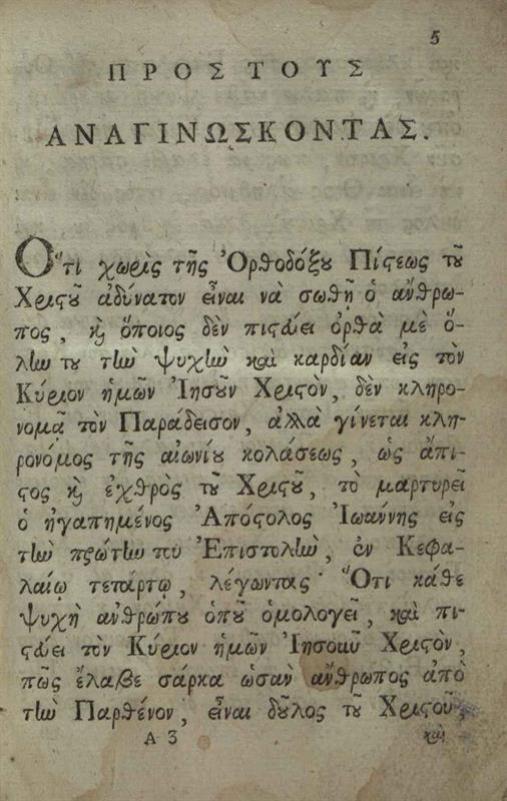 5
ΠΡΟΣ ΤΟΥΣ
ΑΝΑΓΙΝΩΣΚΟΝΤΑΣ.
Ὅτι χωρὶς τῆς Ὀρθοδόξȣ Πίϛεως τȣ͂
Χριϛȣ͂ ἀδύνατον εἶναι νὰ σωθῇ ὁ ἄνθρω-
πος, ϗ ὅποιος δὲν πιϛεύει ὀρθὰ μὲ ὅ-
λην τȣ τὴν ψυχὴν καὶ καρδίαν εἰς τὸν
Κύριον ἡμῶν Ἰησοῦν Χριϛὸν, δὲν κληρο-
νομᾷ τὸν Παράδεισον, ἀλλὰ γίνεται κλη-
ρονόμος τῆς αἰωνίȣ κολάσεως, ὡς ἄπι-
ϛος ϗ ἐχθρὸς τȣ͂ Χριϛȣ͂, τὸ μαρτυρεῖ
ὁ ἠγαπημένος Ἀπόϛολος Ἰωάννης εἰς
τὴν πρώτην του Ἐπιστολὴν, ἐν Κεφα-
λαίῳ τετάρτῳ, λέγωντας· Ὅτι κάθε
ψυχὴ ἀνθρώπȣ ὁπȣ͂ ὁμολογεῖ, καὶ πι-
ϛεύει τὸν Κύριον ἡμῶν Ἰησοῦν Χριϛὸν,
πῶς ἔλαβε σάρκα ὡσὰν ἄνθρωπος ἀπὸ
τὴν Παρθένον, εἶναι δȣ͂λος τȣ͂ Χριϛοῦ,
Α 3 καὶ